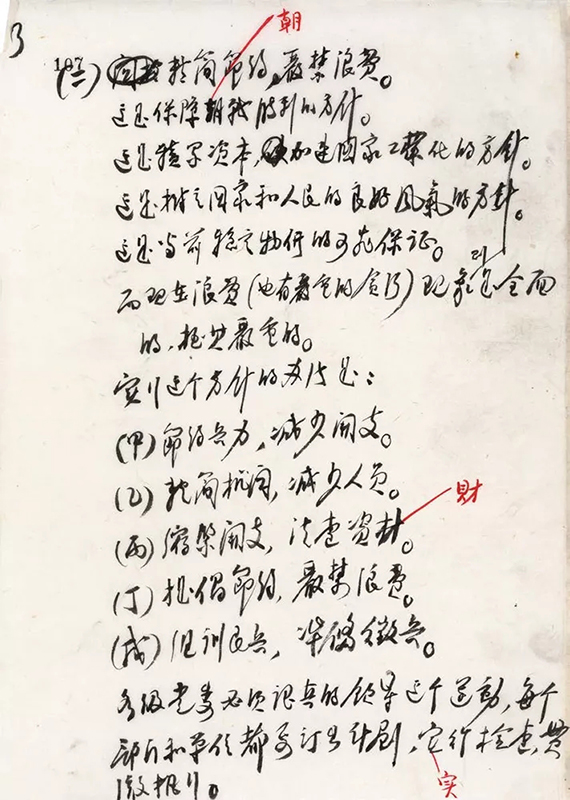 3
朝
(二) 精简節约,严禁浪费。
这是保障朝战胜利的方针。
这是積累资本,加速国家工業化的方针。
这是树立国家和人民的良好风氣的方针。
这是当前稳定物价的可靠保证。
则
而现在浪费(也有严重的贪污)现象是全面
的,极其严重的。
实行这个方针的办法是:
(甲)節约兵力,减少開支。
(乙)精简机関,减少人员。
財
(丙)缩紧開支,清查资财。
(丁)提倡節约,严禁浪费。
(戊)组训民兵,准備徵兵。
各级党委必须认真的领导这个运动,每个
部门和单位都要订出计划,实行检查,贯
实
澈执行。